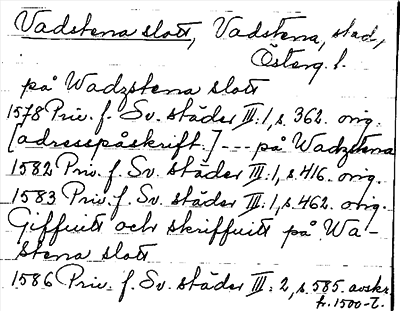 Vadstena slott, Vadstena, stad,
Österg. l.
på Wadzstena slott
1578 Priv. f. Sv. städer III:1, s. 362. orig.
[adresspåskrift.] --- på Wadzstena
1582 Priv. f. Sv. städer III:1, s. 416. orig.
1583 Priv. f. Sv. städer III:1, s. 462. orig.
Giffuitt och skriffuitt på Wa-
stena slott
1586 Priv. f. Sv. städer III:2, s. 585. avskr.
fr. 1500-t.